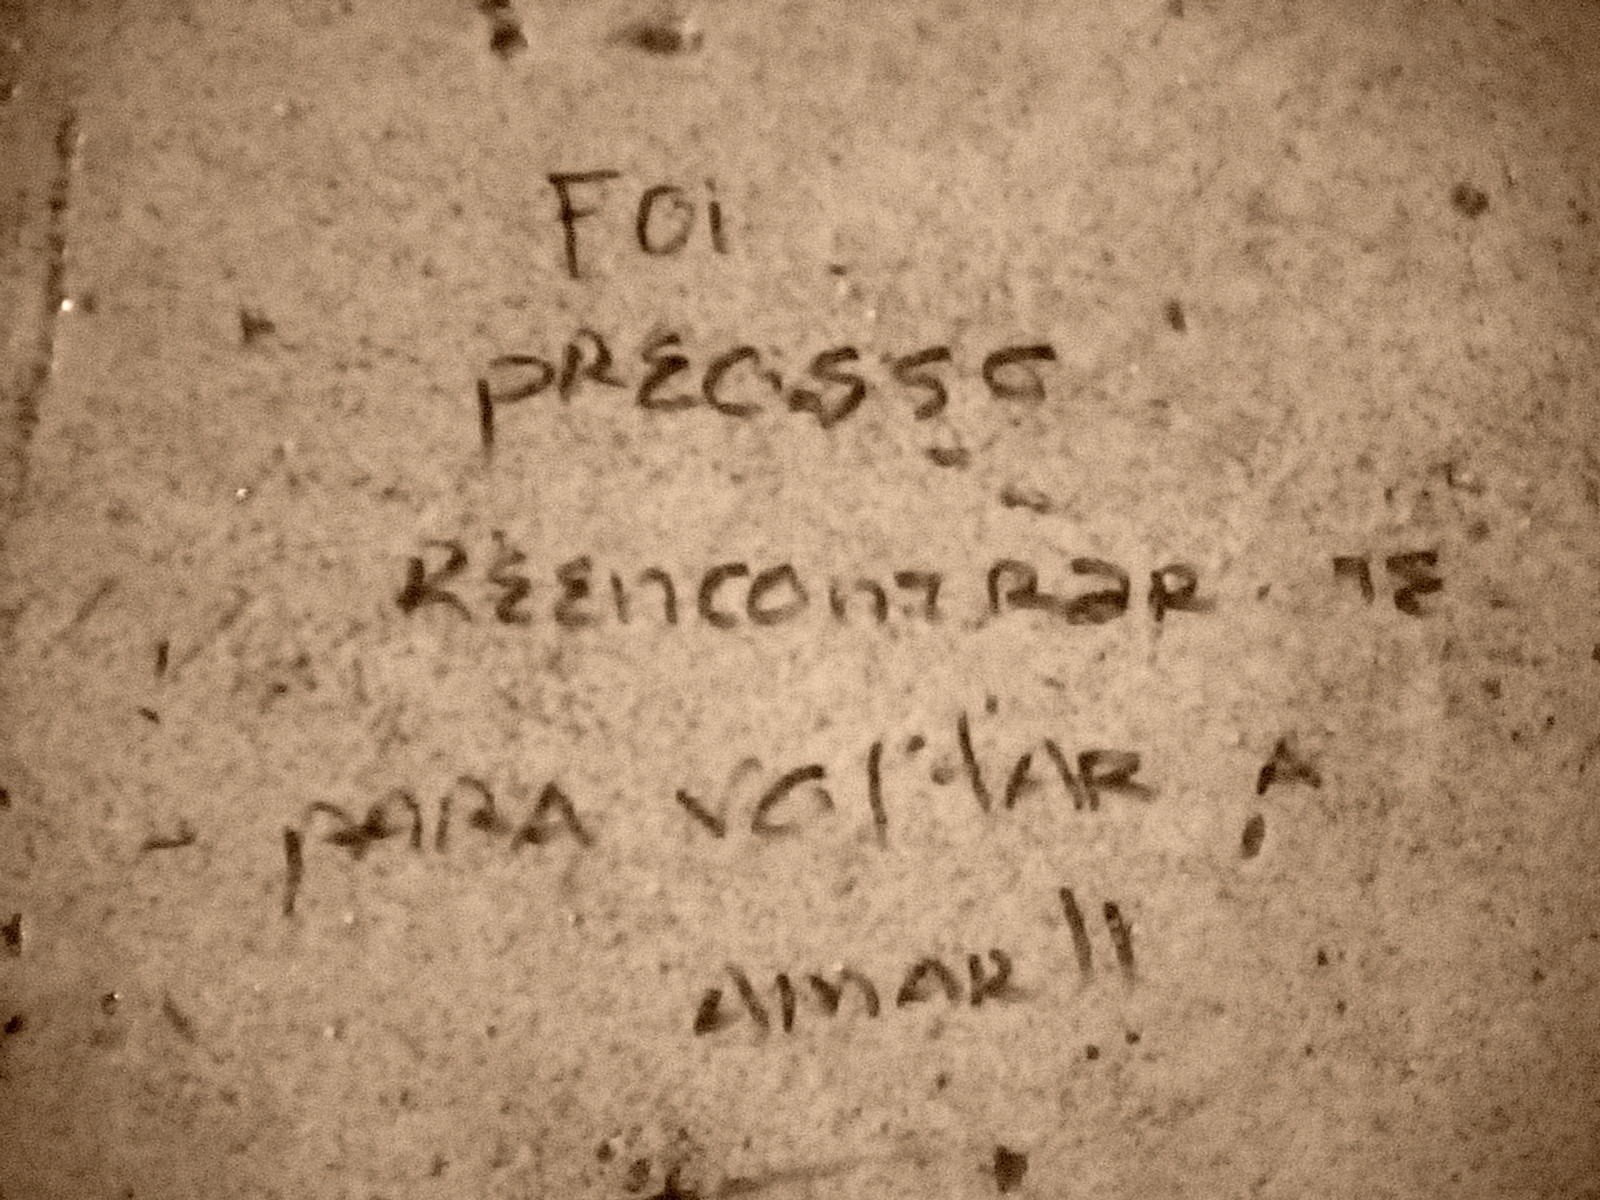 FOi
PRECISSO
REENCONTRAR-TE
PARA VOLTAR A
AMAR!!